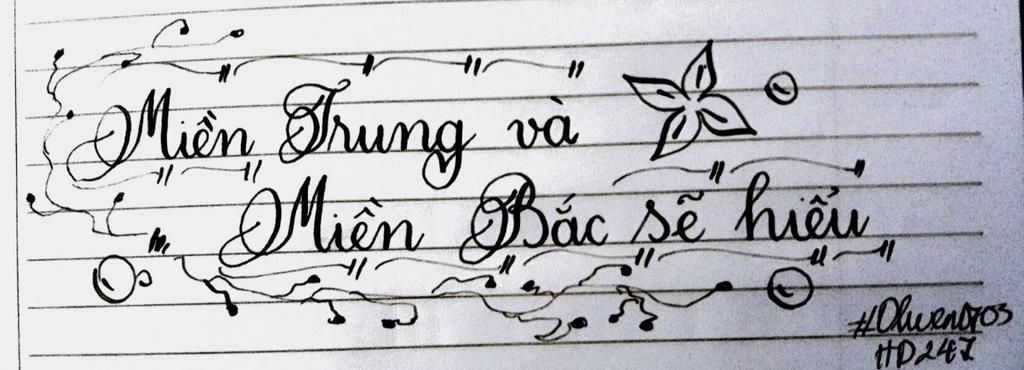 Miền Trung và
Miền Bắc sẽ hiểu
#Olwen0703
HD247